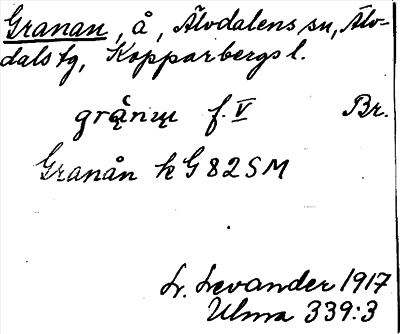 Granan, å, Älvdalens sn, Älv-
dals tg, Kopparbergs l.
grą̊nɯ f. V Br.
Granån k G82SM
L. Levander 1917
Ulma 339:3